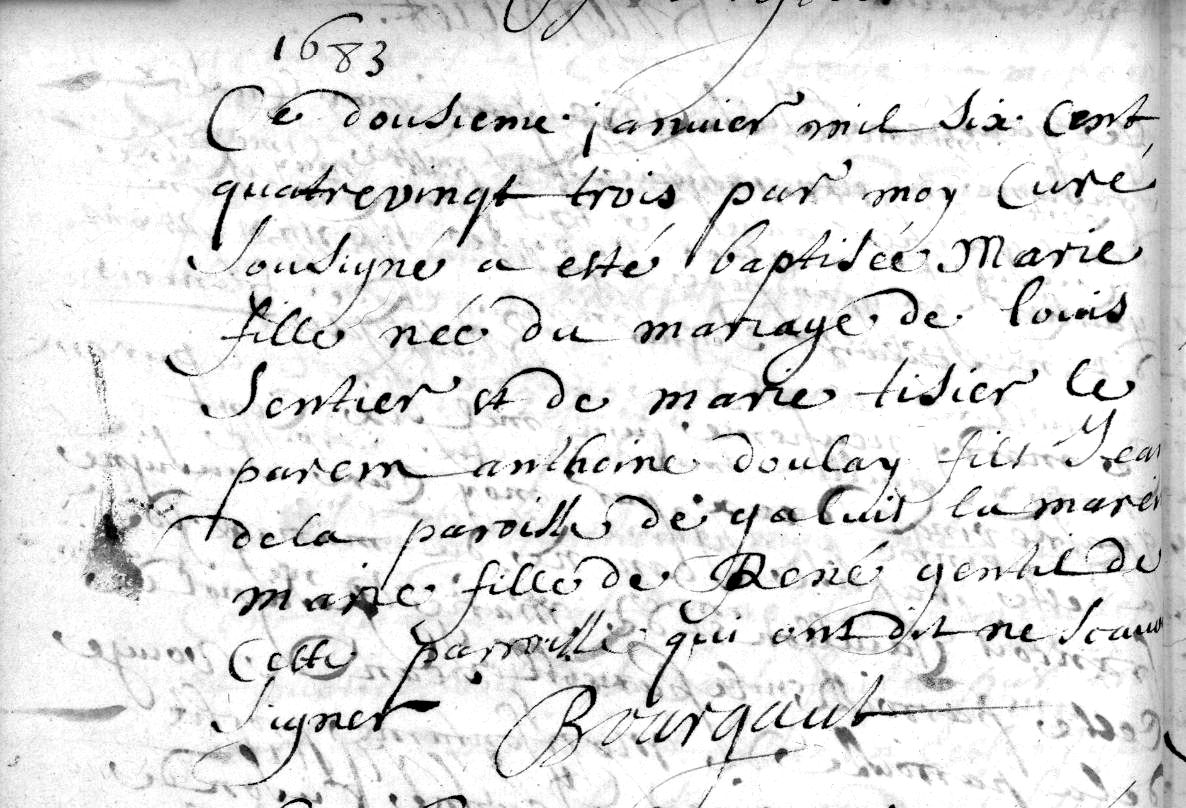 1683
Ce dousieme janvier mil six cent
quatrevingt trois par moy Curé
Sousigné a esté baptisée Marie
fille née du mariage de louis
Sentier et de marie tisier le
parein anthoine doulay fils Jean
dela paroisse de
marie fille de René gentil de
Cette parroisse qui ont dit ne scavoir
Signer Bourgault